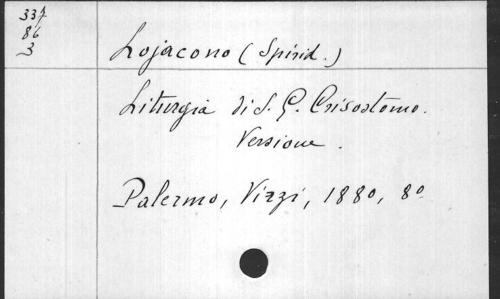 337
86
3
Lojacono (Spirid.)
Liturgia di S. G. Crisostomo.
Versione.
Palermo, Vizzi, 1880, 8º